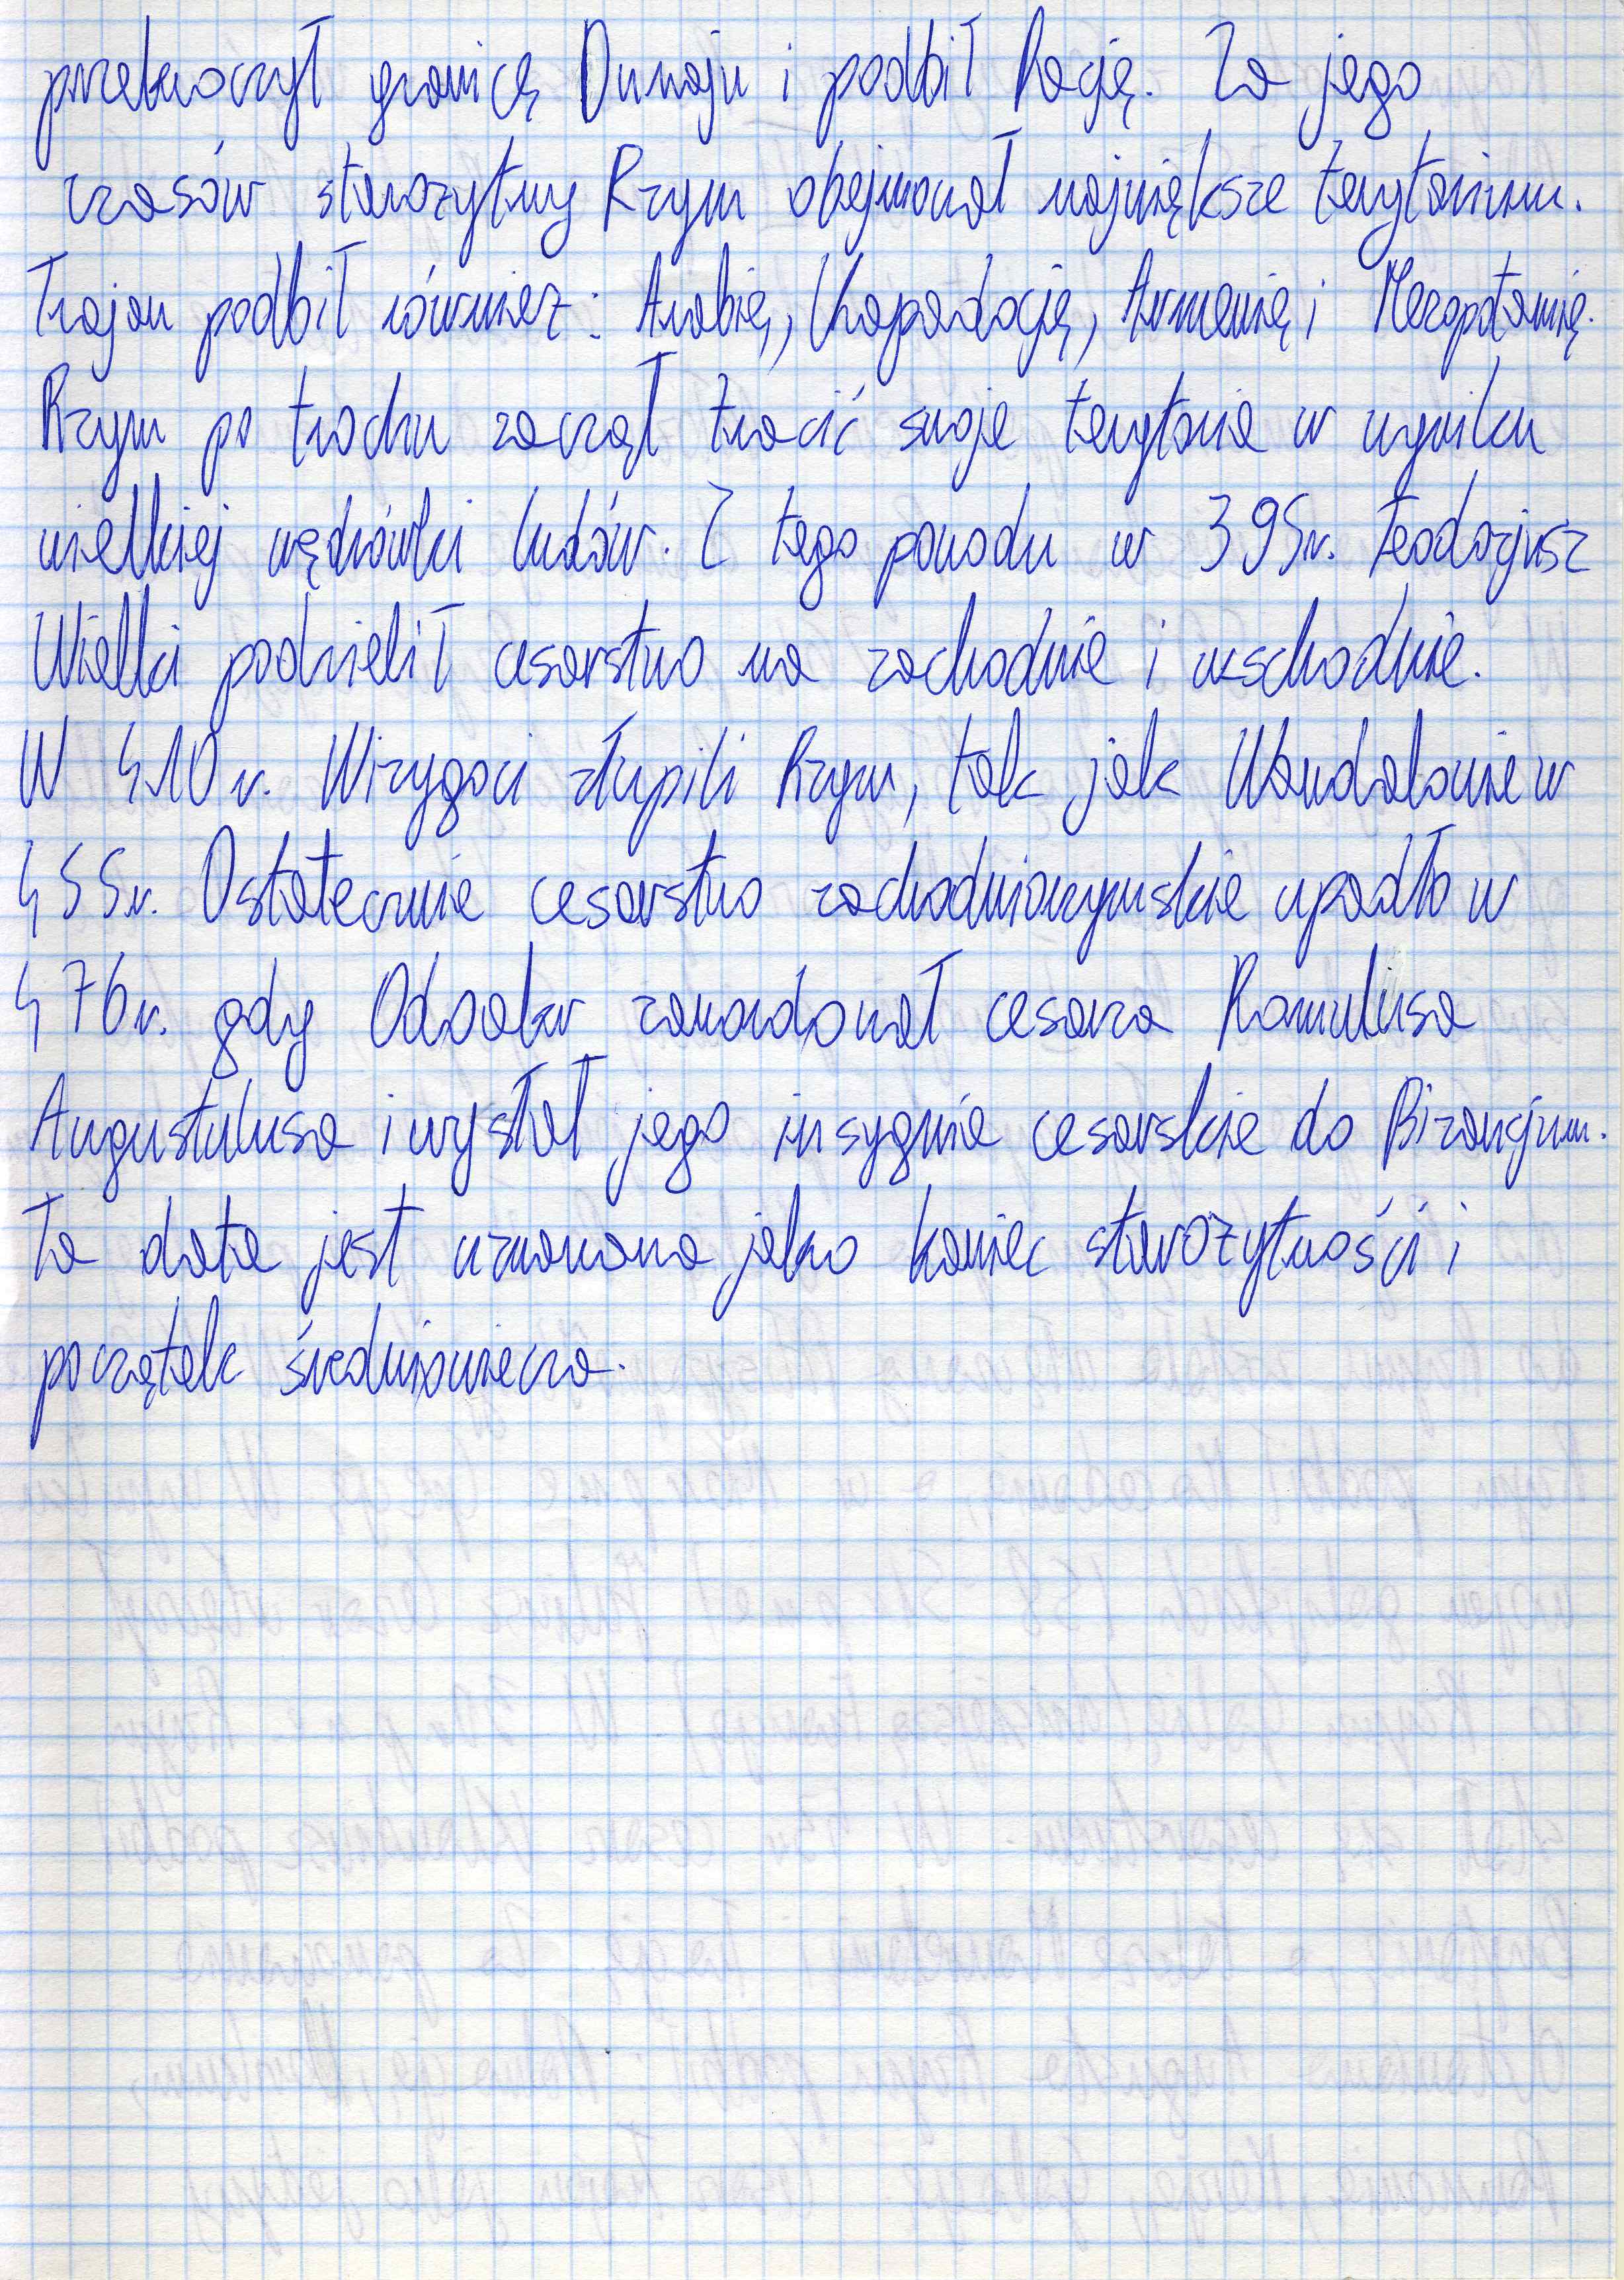 przekroczył granicę Dunaju i podbił Rację. Za jego
czasów starożytny Rzym obejmował największe terytorium.
Trajan podbił również: Arabię, Khapadocję, Armenię i Mezopotamię.
Rzym po trochu zaczął tracić swoje terytoria w wyniku
wielkiej wędrówki ludów. Z tego powodu w 395r. Teodozjusz
Wielki podzielił cesarstwo na zachodnie i wschodnie.
W 410 r. Wizygoci złupili Rzym, tak jak Wandalowie w
455r. Ostatecznie cesarstwo zachodniorzymskie upadło w
476r. gdy Odoakr zamordował cesarza Romulusa
Augustulusa i wysłał jego insygnia cesarskie do Bizancjum.
Ta data jest uznawana jako koniec starożytności i
początek średniowiecza.